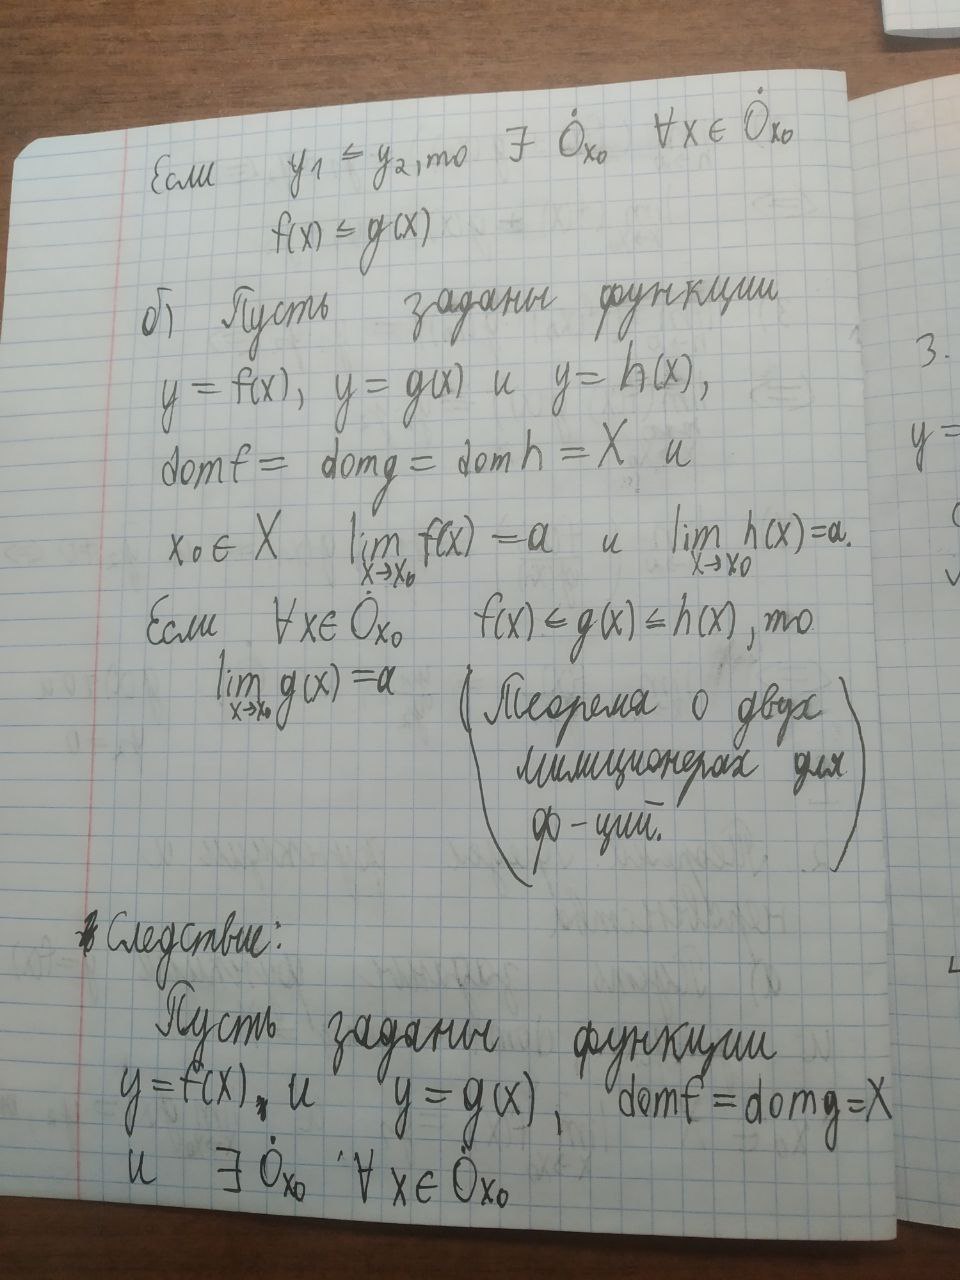 Если y₁ ≤ y₂, то ∃ Ȯx₀ ∀x ∈ Ȯx₀
f(x) ≤ g(x)
б) Пусть заданы функции
y = f(x), y = g(x) и y = h(x),
domf = domg = domh = X и
x₀ ∈ X lim f(x) = a и lim h(x) = a.
x→x₀ x→x₀
Если ∀x∈ Ȯx₀ f(x) ≤ g(x) ≤ h(x), то
lim g(x) = a
x→x₀
(Теорема о двух
милиционерах для
ф-ций.)
Следствие:
Пусть заданы функции
y = f(x) и y = g(x), domf = domg = X
и ∃ Ȯx₀ ∀x ∈ Ȯx₀
3.
y=